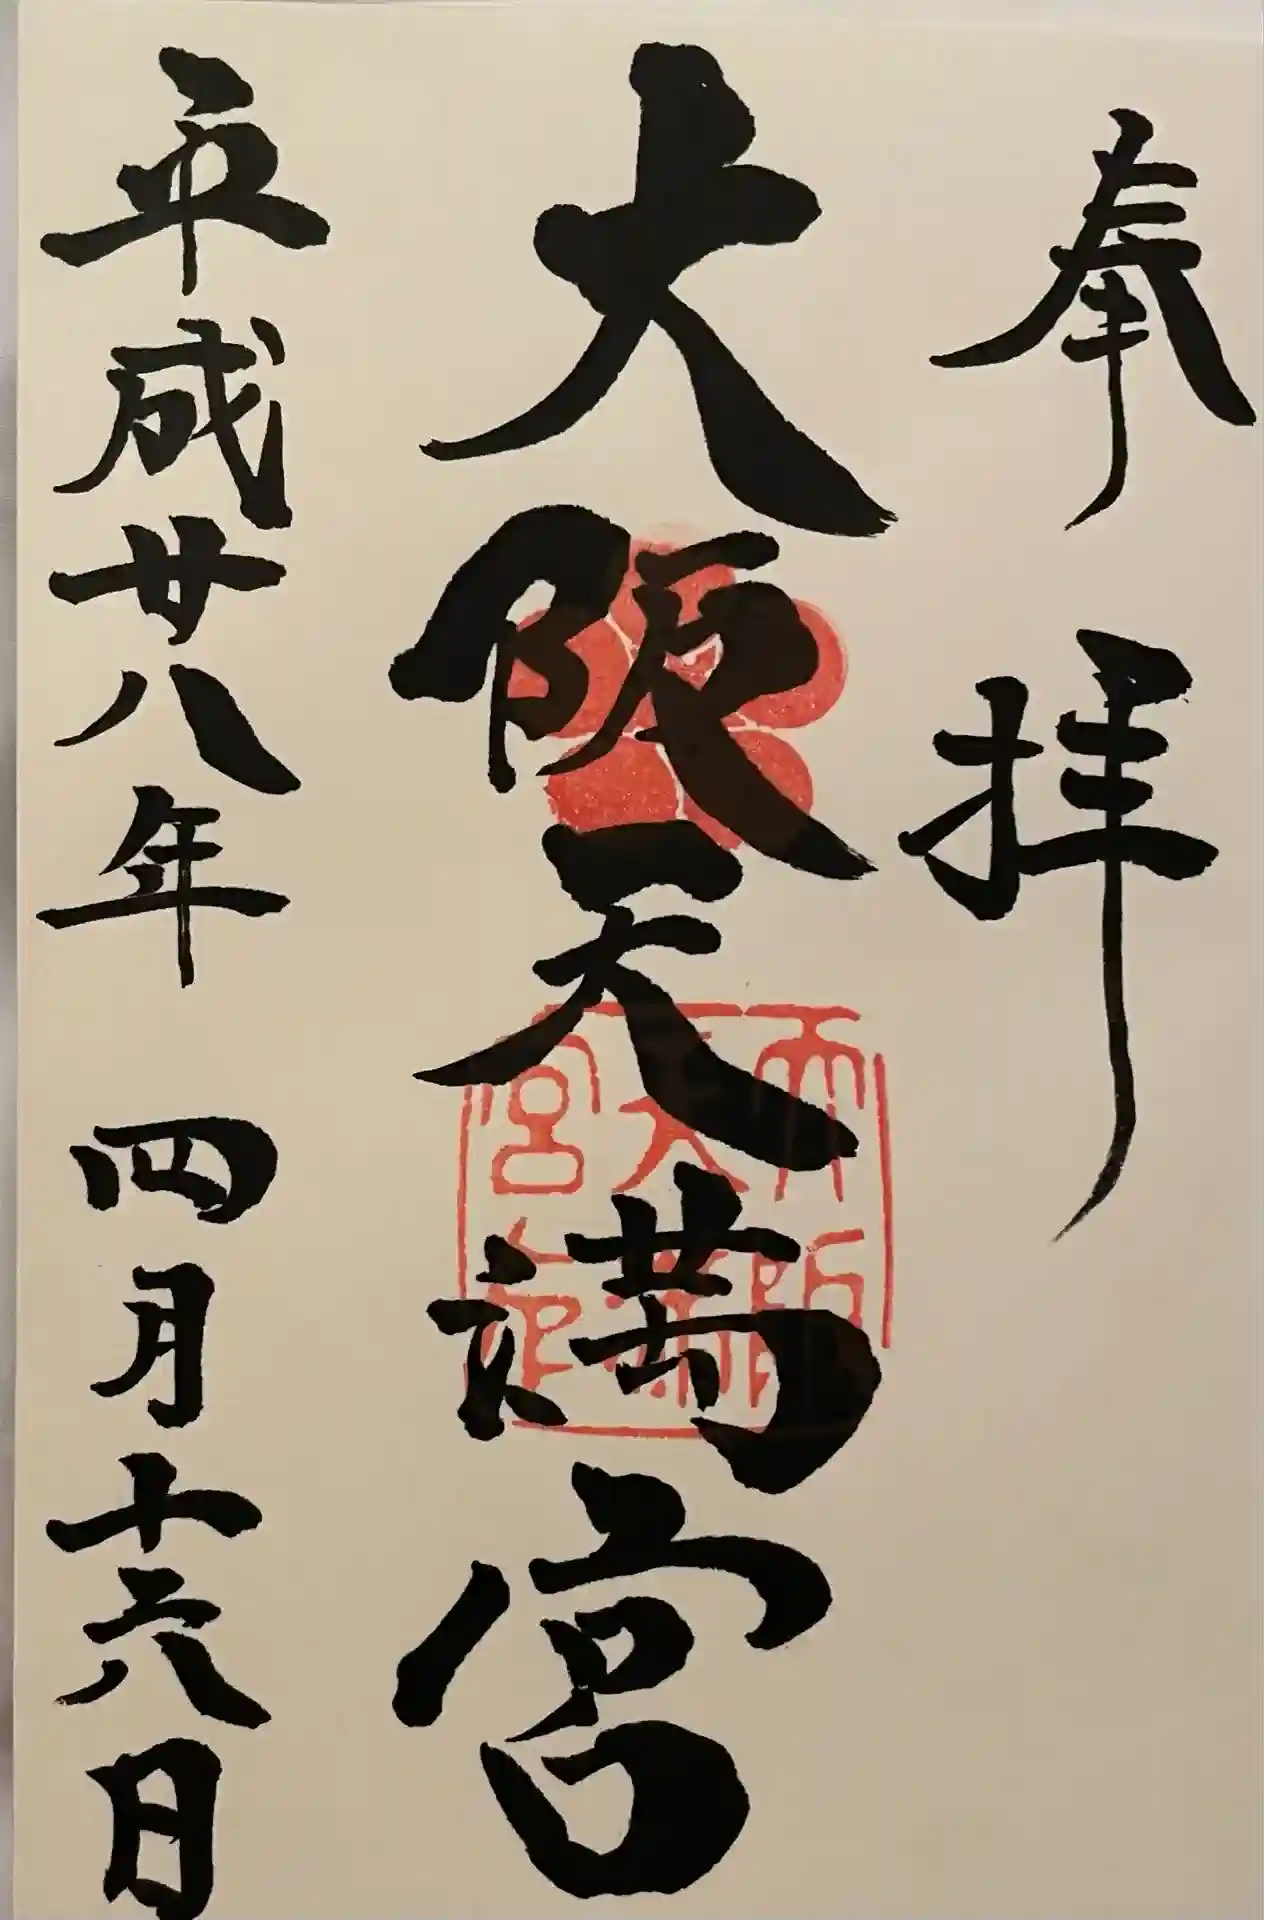 奉拝
大阪天満宮
平成廿八年 四月十六日
大阪天満宮之印